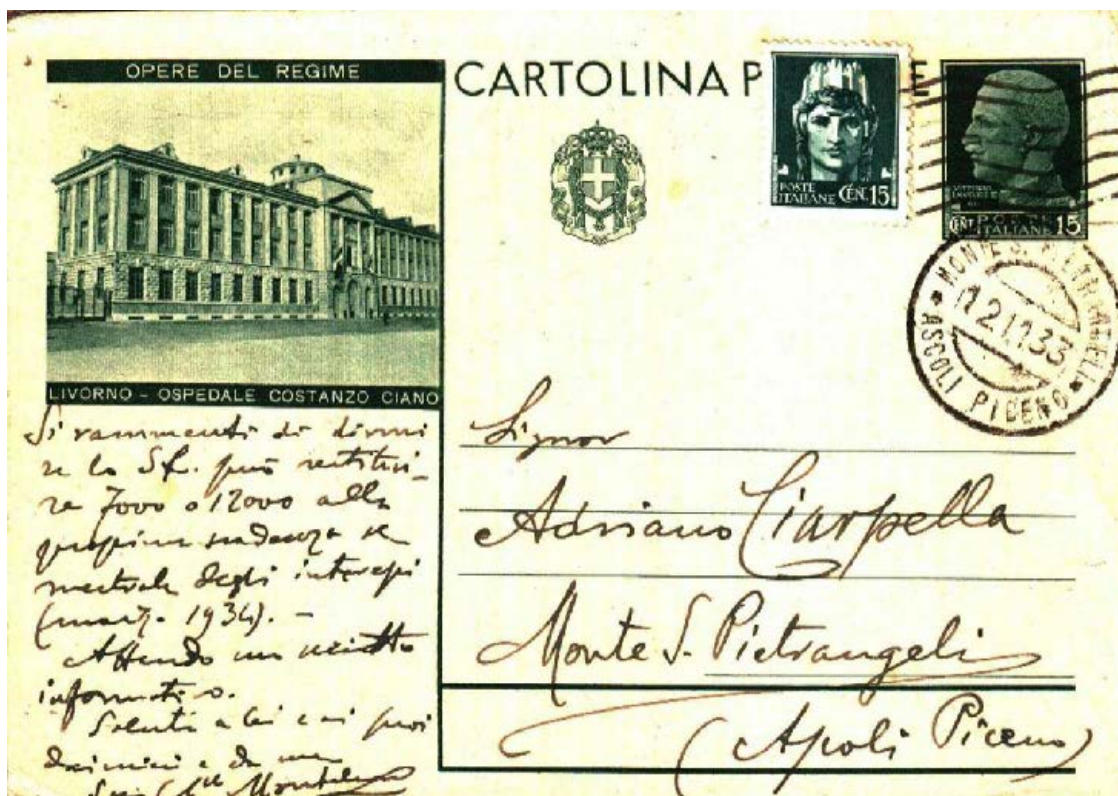 OPERE DEL REGIME
LIVORNO - OSPEDALE COSTANZO CIANO
CARTOLINA P E
POSTE
ITALIANE CEN. 15
VITTORIO
CENT. POSTE 15
ITALIANE
MONTE S. PIETRANGELI
ASCOLI PICENO
Si rammenti di dirmi
se lo Sf. può restitui-
re 7000 o 12000 alla
prossima scadenza se
mestrale degli interessi
(marz. 1934). -
Attendo un
informativo.
Saluti a Lei e ai suoi
da me
Signor
Adriano Ciarpella
Monte S. Pietrangeli
(Ascoli Piceno)